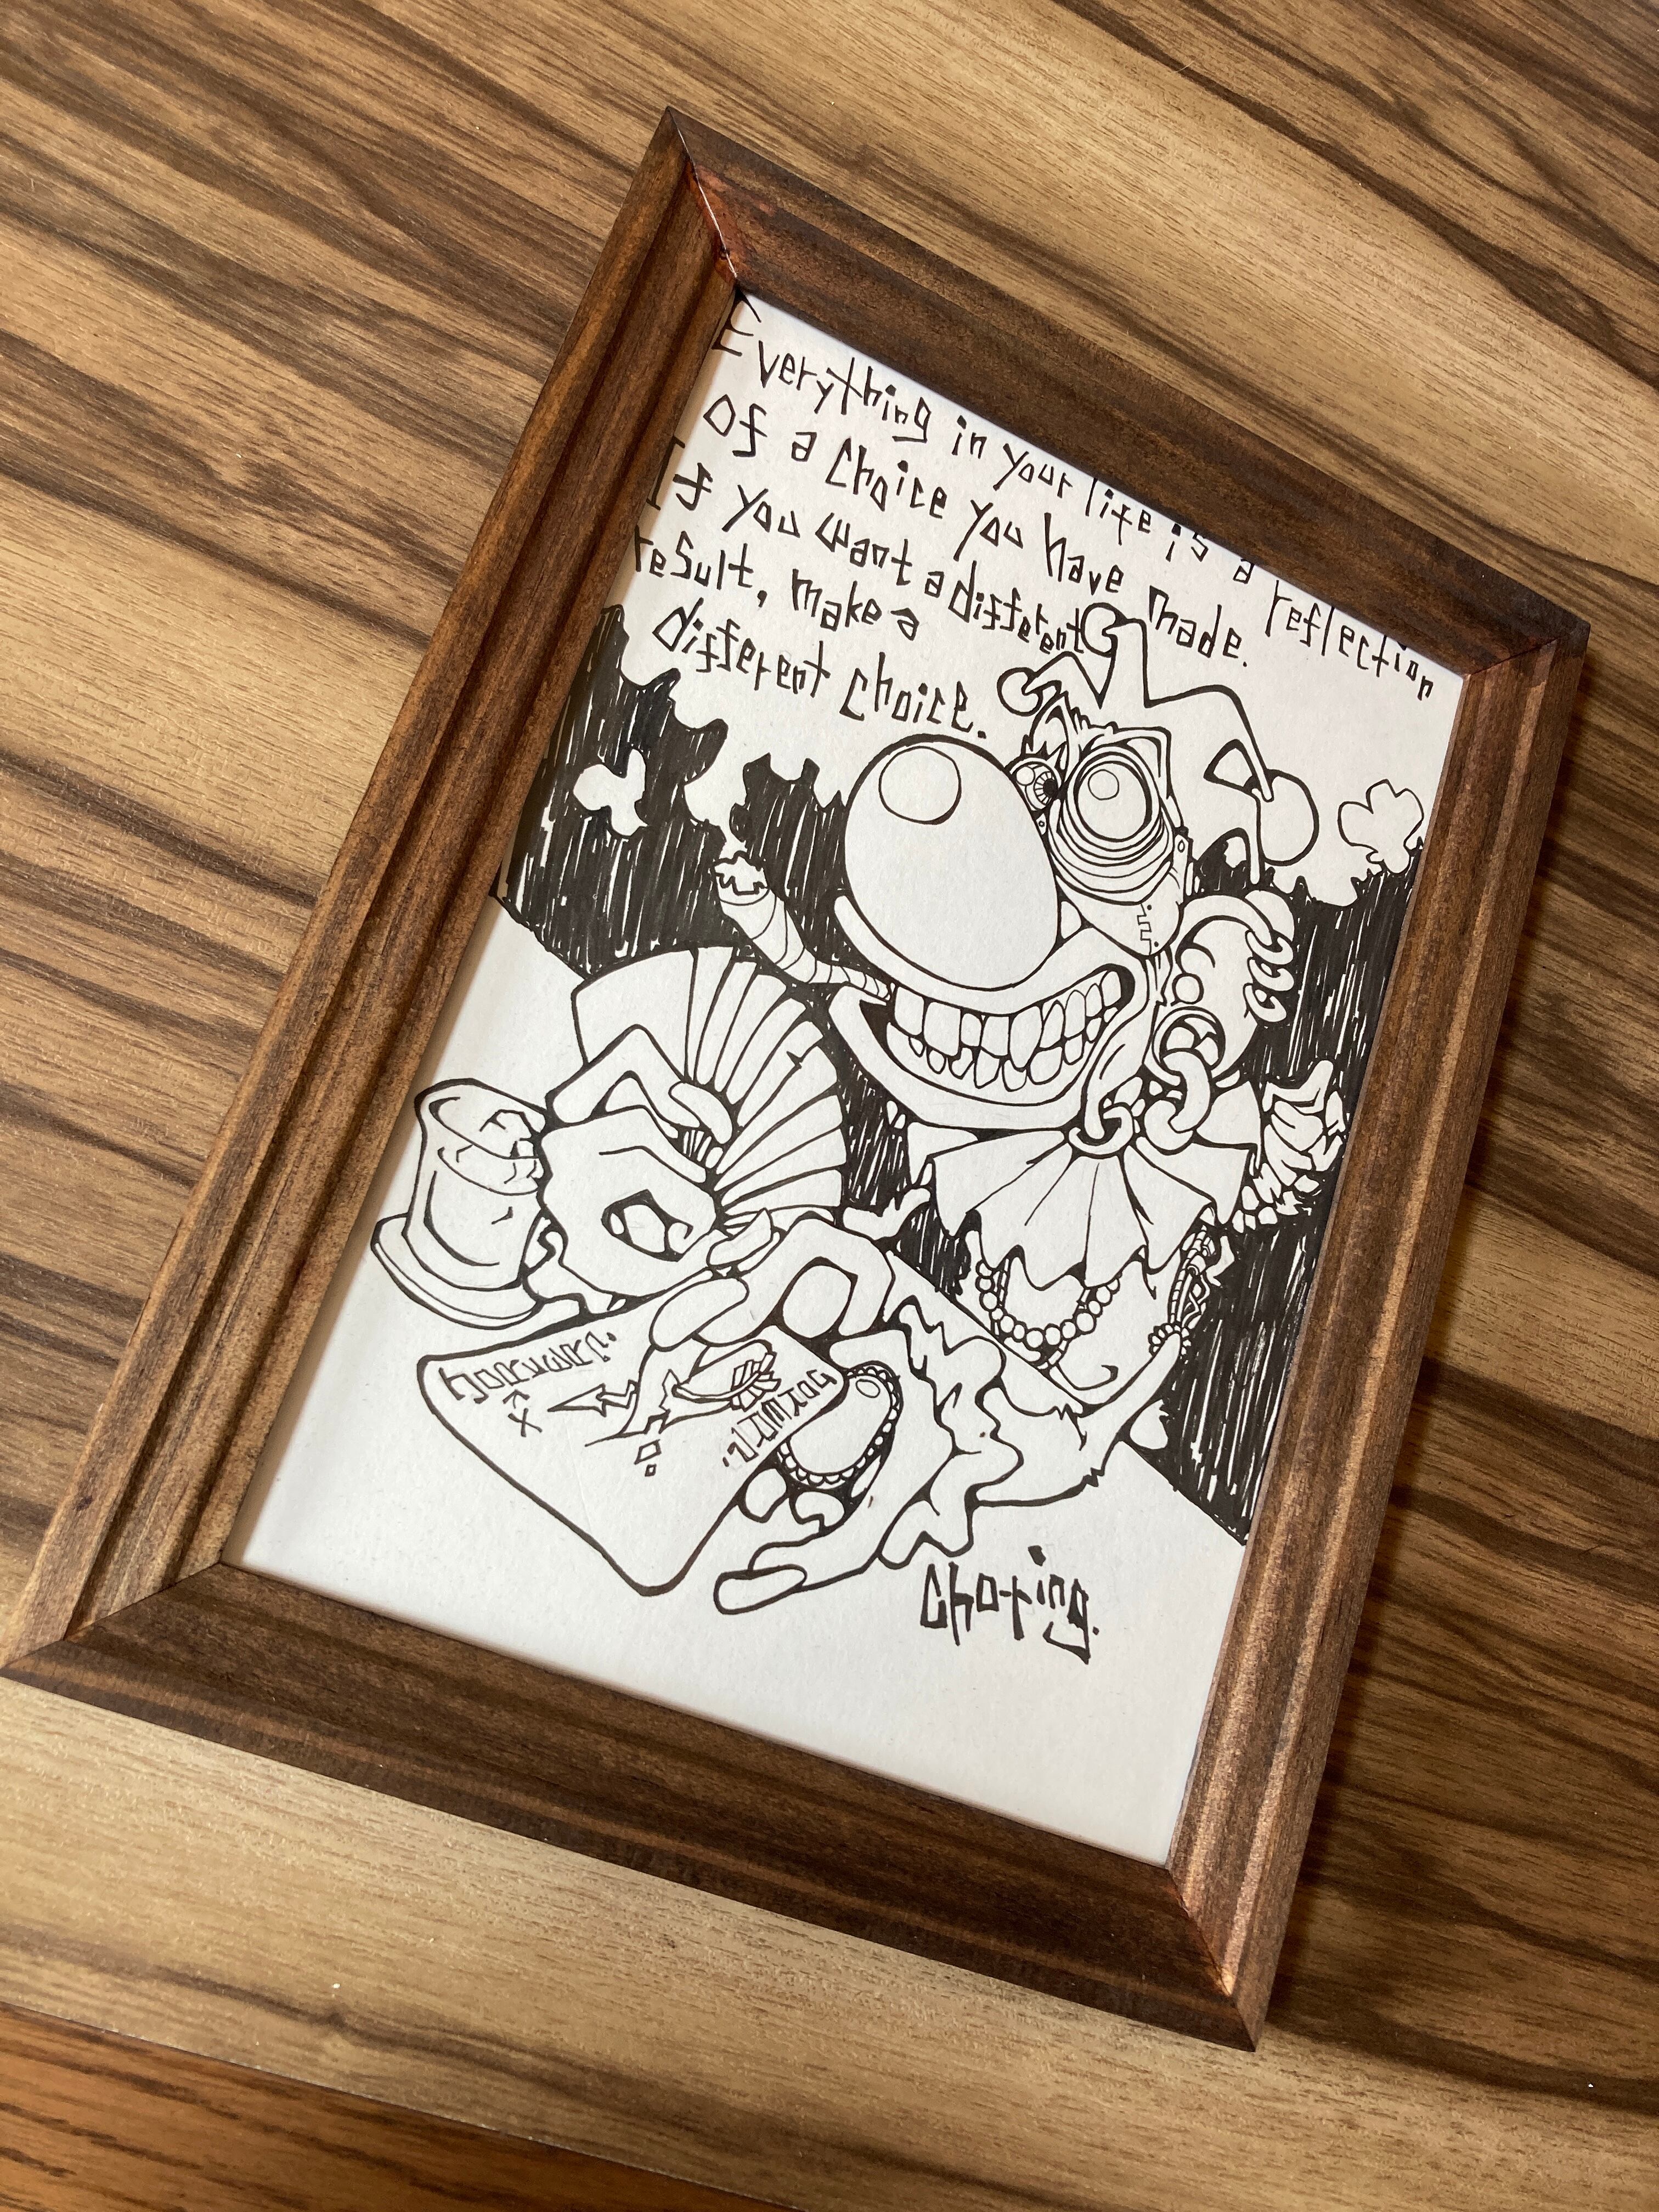 Everything in your life is a reflection
of a choice you have made.
If you want a different
result, make a
different choice.
choting.